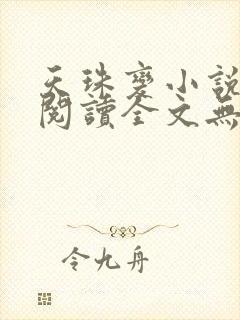 天珠變小說
閱讀全文無
令九舟